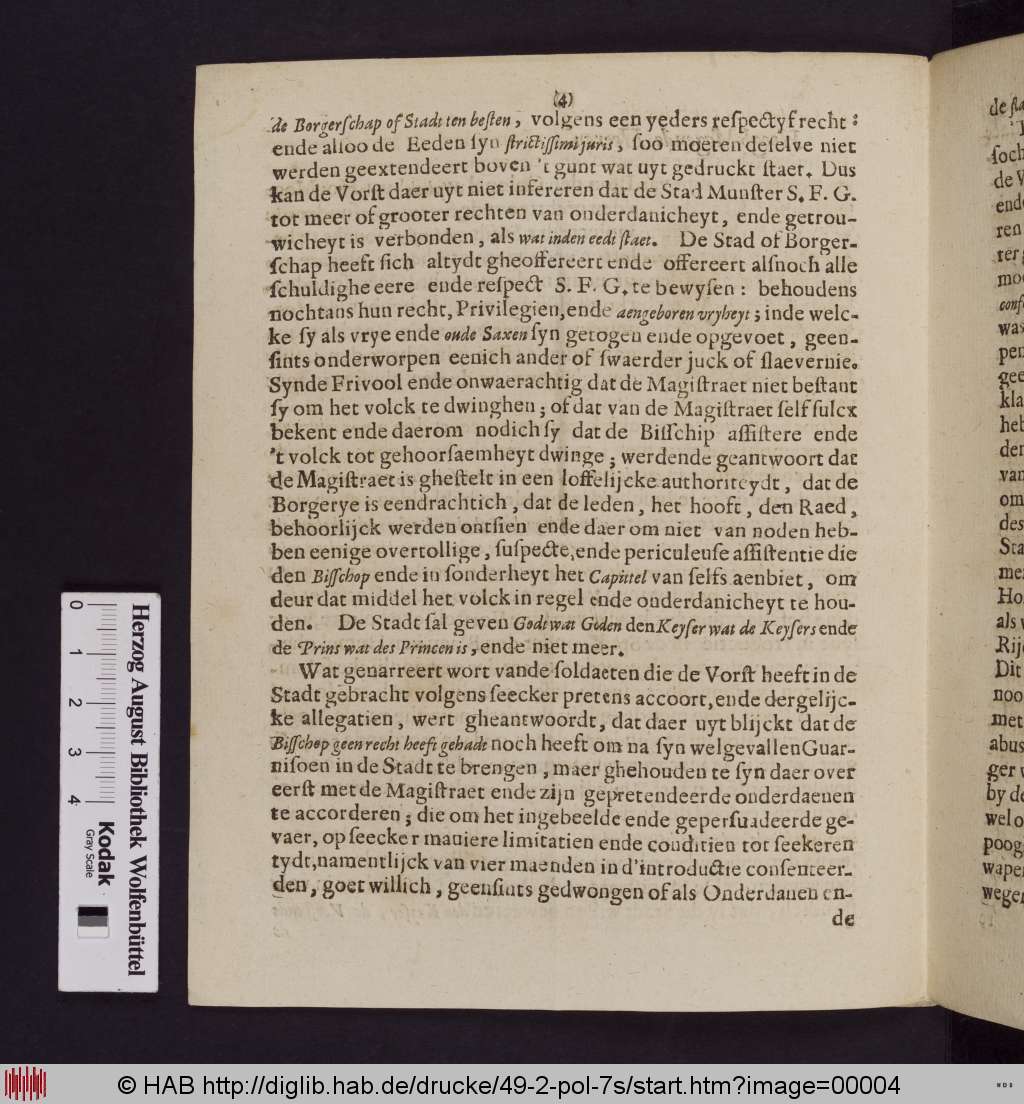 (4)
de Borgerſchap of Stadt ten beſten, volgens een yeders reſpectyf recht:
ende alſoo de Eeden ſyn ſtrictiſſimi juris, ſoo moeten deſelve niet
werden geextendeert boven 't gunt wat uyt gedruckt ſtaet. Dus
kan de Vorſt daer uyt niet infereren dat de Stad Munſter S. F. G.
tot meer of grooter rechten van onderdanicheyt, ende getrou-
wicheyt is verbonden, als wat inden eedt ſtaet. De Stad of Borger-
ſchap heeft ſich altydt gheoffereert ende offereert alſnoch alle
ſchuldighe eere ende reſpect S. F. G. te bewyſen: behoudens
nochtans hun recht, Privilegien, ende aengeboren vryheyt; inde welc-
ke ſy als vrye ende oude Saxen ſyn getogen ende opgevoet, geen-
ſints onderworpen eenich ander of ſwaerder juck of ſlaevernie.
Synde Frivool ende onwaerachtig dat de Magiſtraet niet beſtant
ſy om het volck te dwinghen; of dat van de Magiſtraet ſelf ſulcx
bekent ende daerom nodich ſy dat de Biſſchip aſſiſtere ende
't volck tot gehoorſaemheyt dwinge; werdende geantwoort dat
de Magiſtraet is gheſtelt in een loffelijcke authoriteydt, dat de
Borgerye is eendrachtich, dat de leden, het hooft, den Raed,
behoorlijck werden ontſien ende daer om niet van noden heb-
ben eenige overtollige, ſuſpecte, ende periculeuſe aſſiſtentie die
den Biſſchop ende in ſonderheyt het Capittel van ſelfs aenbiet, om
deur dat middel het volck in regel ende onderdanicheyt te hou-
den. De Stadt ſal geven Godt wat Goden den Keyſer wat de Keyſers ende
de Prins wat des Princen is, ende niet meer.
Wat genarreert wort vande ſoldaeten die de Vorſt heeft in de
Stadt gebracht volgens ſeecker pretens accoort, ende dergelijc-
ke allegatien, wert gheantwoordt, dat daer uyt blijckt dat de
Biſſchop geen recht heeft gehadt noch heeft om na ſyn welgevallen Guar-
niſoen in de Stadt te brengen, maer ghehouden te ſyn daer over
eerſt met de Magiſtraet ende zijn gepretendeerde onderdaenen
te accorderen; die om het ingebeelde ende geperſuadeerde ge-
vaer, op ſeecker maniere limitatien ende conditien tot ſeekeren
tydt, namentlijck van vier maenden in d'introductie conſenteer-
den, goet willich, geenſints gedwongen of als Onderdanen en-
de
Herzog August Bibliothek Wolfenbüttel
Kodak
Gray Scale
0 1 2 3 4
© HAB http://diglib.hab.de/drucke/49-2-pol-7s/start.htm?image=00004